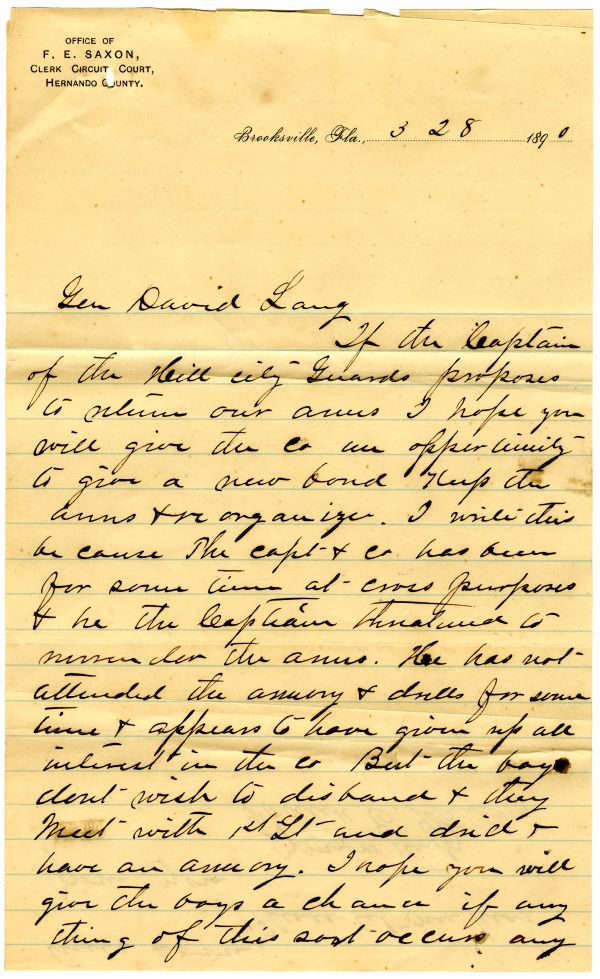 OFFICE OF
F. E. SAXON,
CLERK CIRCUIT COURT,
HERNANDO COUNTY.
Brooksville, Fla., 3 28 1890
Gen David Lang
If the Captain
of the Hill city Guards proposes
to return our arms I hope you
will give the co an opportunity
to give a new bond Keep the
arms & re organize. I write this
be cause The capt & co has been
for some time at cross purposes
& he the Captain threatened to
surrender the arms. He has not
attended the armory & drills for some
time & appears to have given up all
interest in the co But the boys
dont wish to disband & they
Meet with 1st Lt and drill &
have an armory. I hope you will
give the boys a chance if any
thing of this sort occurs any